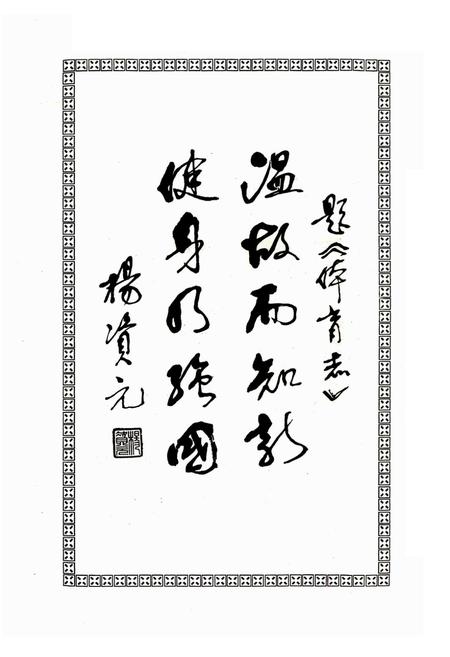 題《体育志》
温故而知新
健身強國
楊資元